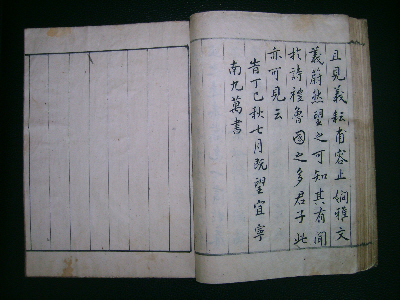 且見義耘甫容止絢雅文
義蔚然望之可知其有聞
於詩禮魯國之多君子此
亦可見云
旹丁巳秋七月既望宜寧
南九萬書